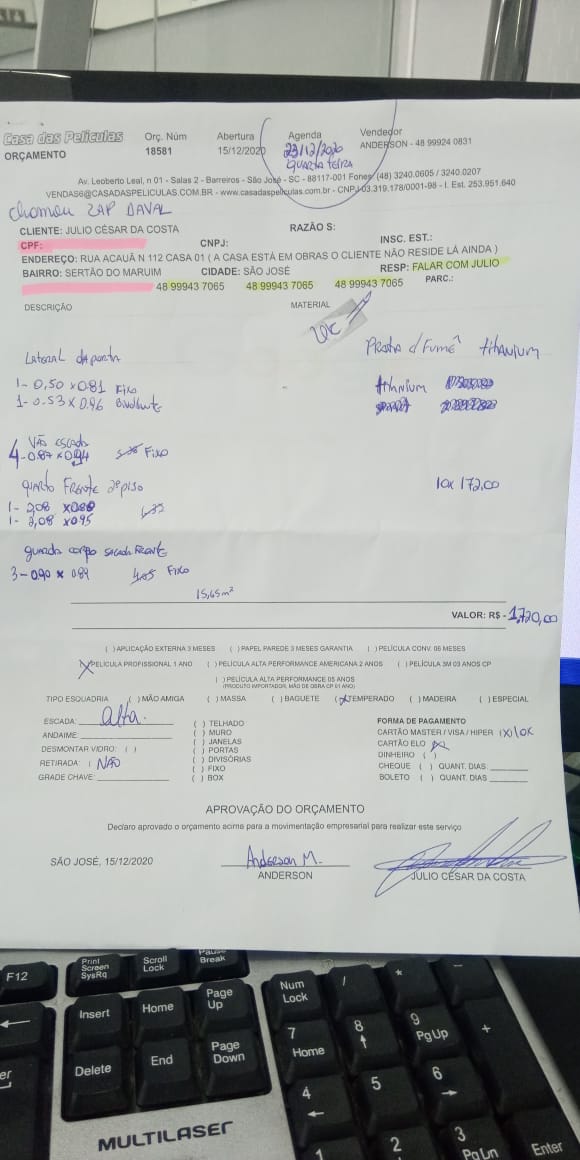 Casa das Películas
ORÇAMENTO
Orç. Núm
18581
Abertura
15/12/2020
Agenda
23/12/2020
QUARTA FEIRA
Vendedor
ANDERSON - 48 99924 0831
Av. Leoberto Leal, n 01 - Salas 2 - Barreiros - São José - SC - 88117-001 Fones: (48) 3240.0605 / 3240.0207
VENDAS6@CASADASPELICULAS.COM.BR - www.casadaspeliculas.com.br - CNPJ 03.319.178/0001-98 - I. Est. 253.951.640
chamou ZAP DAVAL
CLIENTE: JULIO CÉSAR DA COSTA RAZÃO S:
CPF: CNPJ: INSC. EST.:
ENDEREÇO: RUA ACAUÃ N 112 CASA 01 ( A CASA ESTÁ EM OBRAS O CLIENTE NÃO RESIDE LÁ AINDA )
BAIRRO: SERTÃO DO MARUIM CIDADE: SÃO JOSÉ RESP: FALAR COM JULIO
48 99943 7065 48 99943 7065 48 99943 7065 PARC.:
DESCRIÇÃO MATERIAL
Lateral da porta Prata d/ Fumê titanium
1- 0,50 x 0.81 Fixo titanium
1- 0.53 x 0.96
Vão escada
4- 0.87 x 0.94 Fixo
quarto Frente 2º piso 10x 172,00
1- 2,08 x
1- 2,08 x 0.95
guarda corpo sacada Frente
3- 0.90 x 0.89 Fixo
15,65 m²
VALOR: R$ - 1.720,00
( ) APLICAÇÃO EXTERNA 3 MESES ( ) PAPEL PAREDE 3 MESES GARANTIA ( ) PELÍCULA CONV. 06 MESES
(X) PELÍCULA PROFISSIONAL 1 ANO ( ) PELÍCULA ALTA PERFORMANCE AMERICANA 2 ANOS ( ) PELÍCULA 3M 03 ANOS CP
( ) PELÍCULA ALTA PERFORMANCE 05 ANOS
(PRODUTO IMPORTADOR, MÃO DE OBRA CP 01 ANO)
TIPO ESQUADRIA ( ) MÃO AMIGA ( ) MASSA ( ) BAGUETE (X) TEMPERADO ( ) MADEIRA ( ) ESPECIAL
ESCADA: alta.
ANDAIME:
DESMONTAR VIDRO: ( )
RETIRADA: ( NÃO
GRADE CHAVE:
( ) TELHADO
( ) MURO
( ) JANELAS
( ) PORTAS
( ) DIVISÓRIAS
( ) FIXO
( ) BOX
FORMA DE PAGAMENTO
CARTÃO MASTER / VISA / HIPER (X) 10X
CARTÃO ELO
DINHEIRO ( )
CHEQUE ( ) QUANT. DIAS:
BOLETO ( ) QUANT. DIAS
APROVAÇÃO DO ORÇAMENTO
Declaro aprovado o orçamento acima para a movimentação empresarial para realizar este serviço
SÃO JOSÉ, 15/12/2020
Anderson M.
ANDERSON
JULIO CÉSAR DA COSTA
F12
Print Screen SysRq
Scroll Lock
Pause Break
Insert
Home
Page Up
Num Lock
/
*
−
Delete
End
Page Down
7 Home
8
9 PgUp
+
4
5
6
MULTILASER
1
2
3 PgDn
Enter